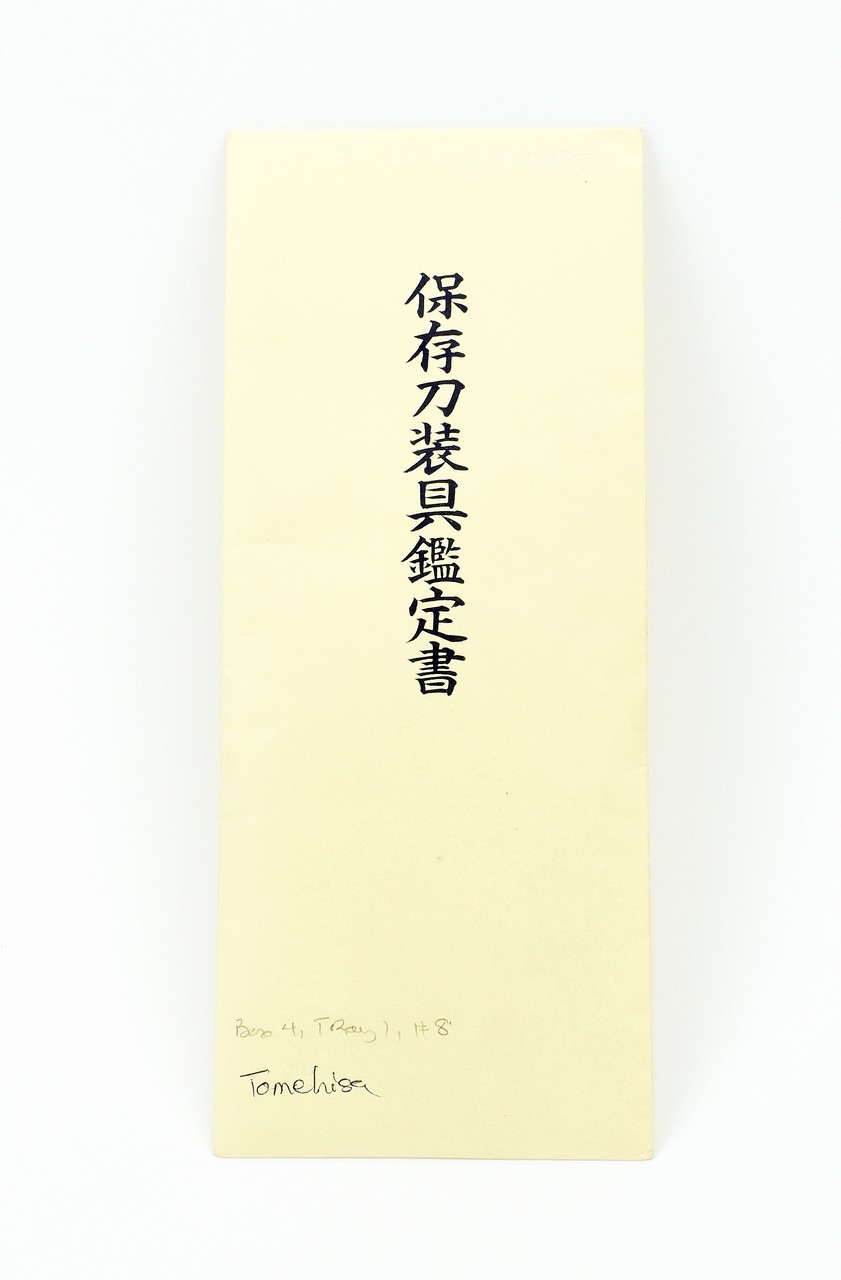 保存刀装具鑑定書
Box 4, TRay 1, #8
Tomehisa